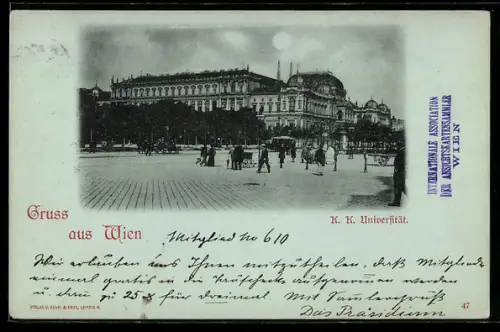 Gruss
aus Wien
K. K. Universität.
INTERNATIONALE ASSOCIATION
DER ANSICHTSKARTENSAMMLER
WIEN
Mitglied No 610
Wir erlauben uns Ihnen mitzutheilen, daß Mitglieder
einmal gratis in die aufgenommen werden
u. dann zu 25 x für dreimal. Mit Sammlergruß
Das Präsidium
47